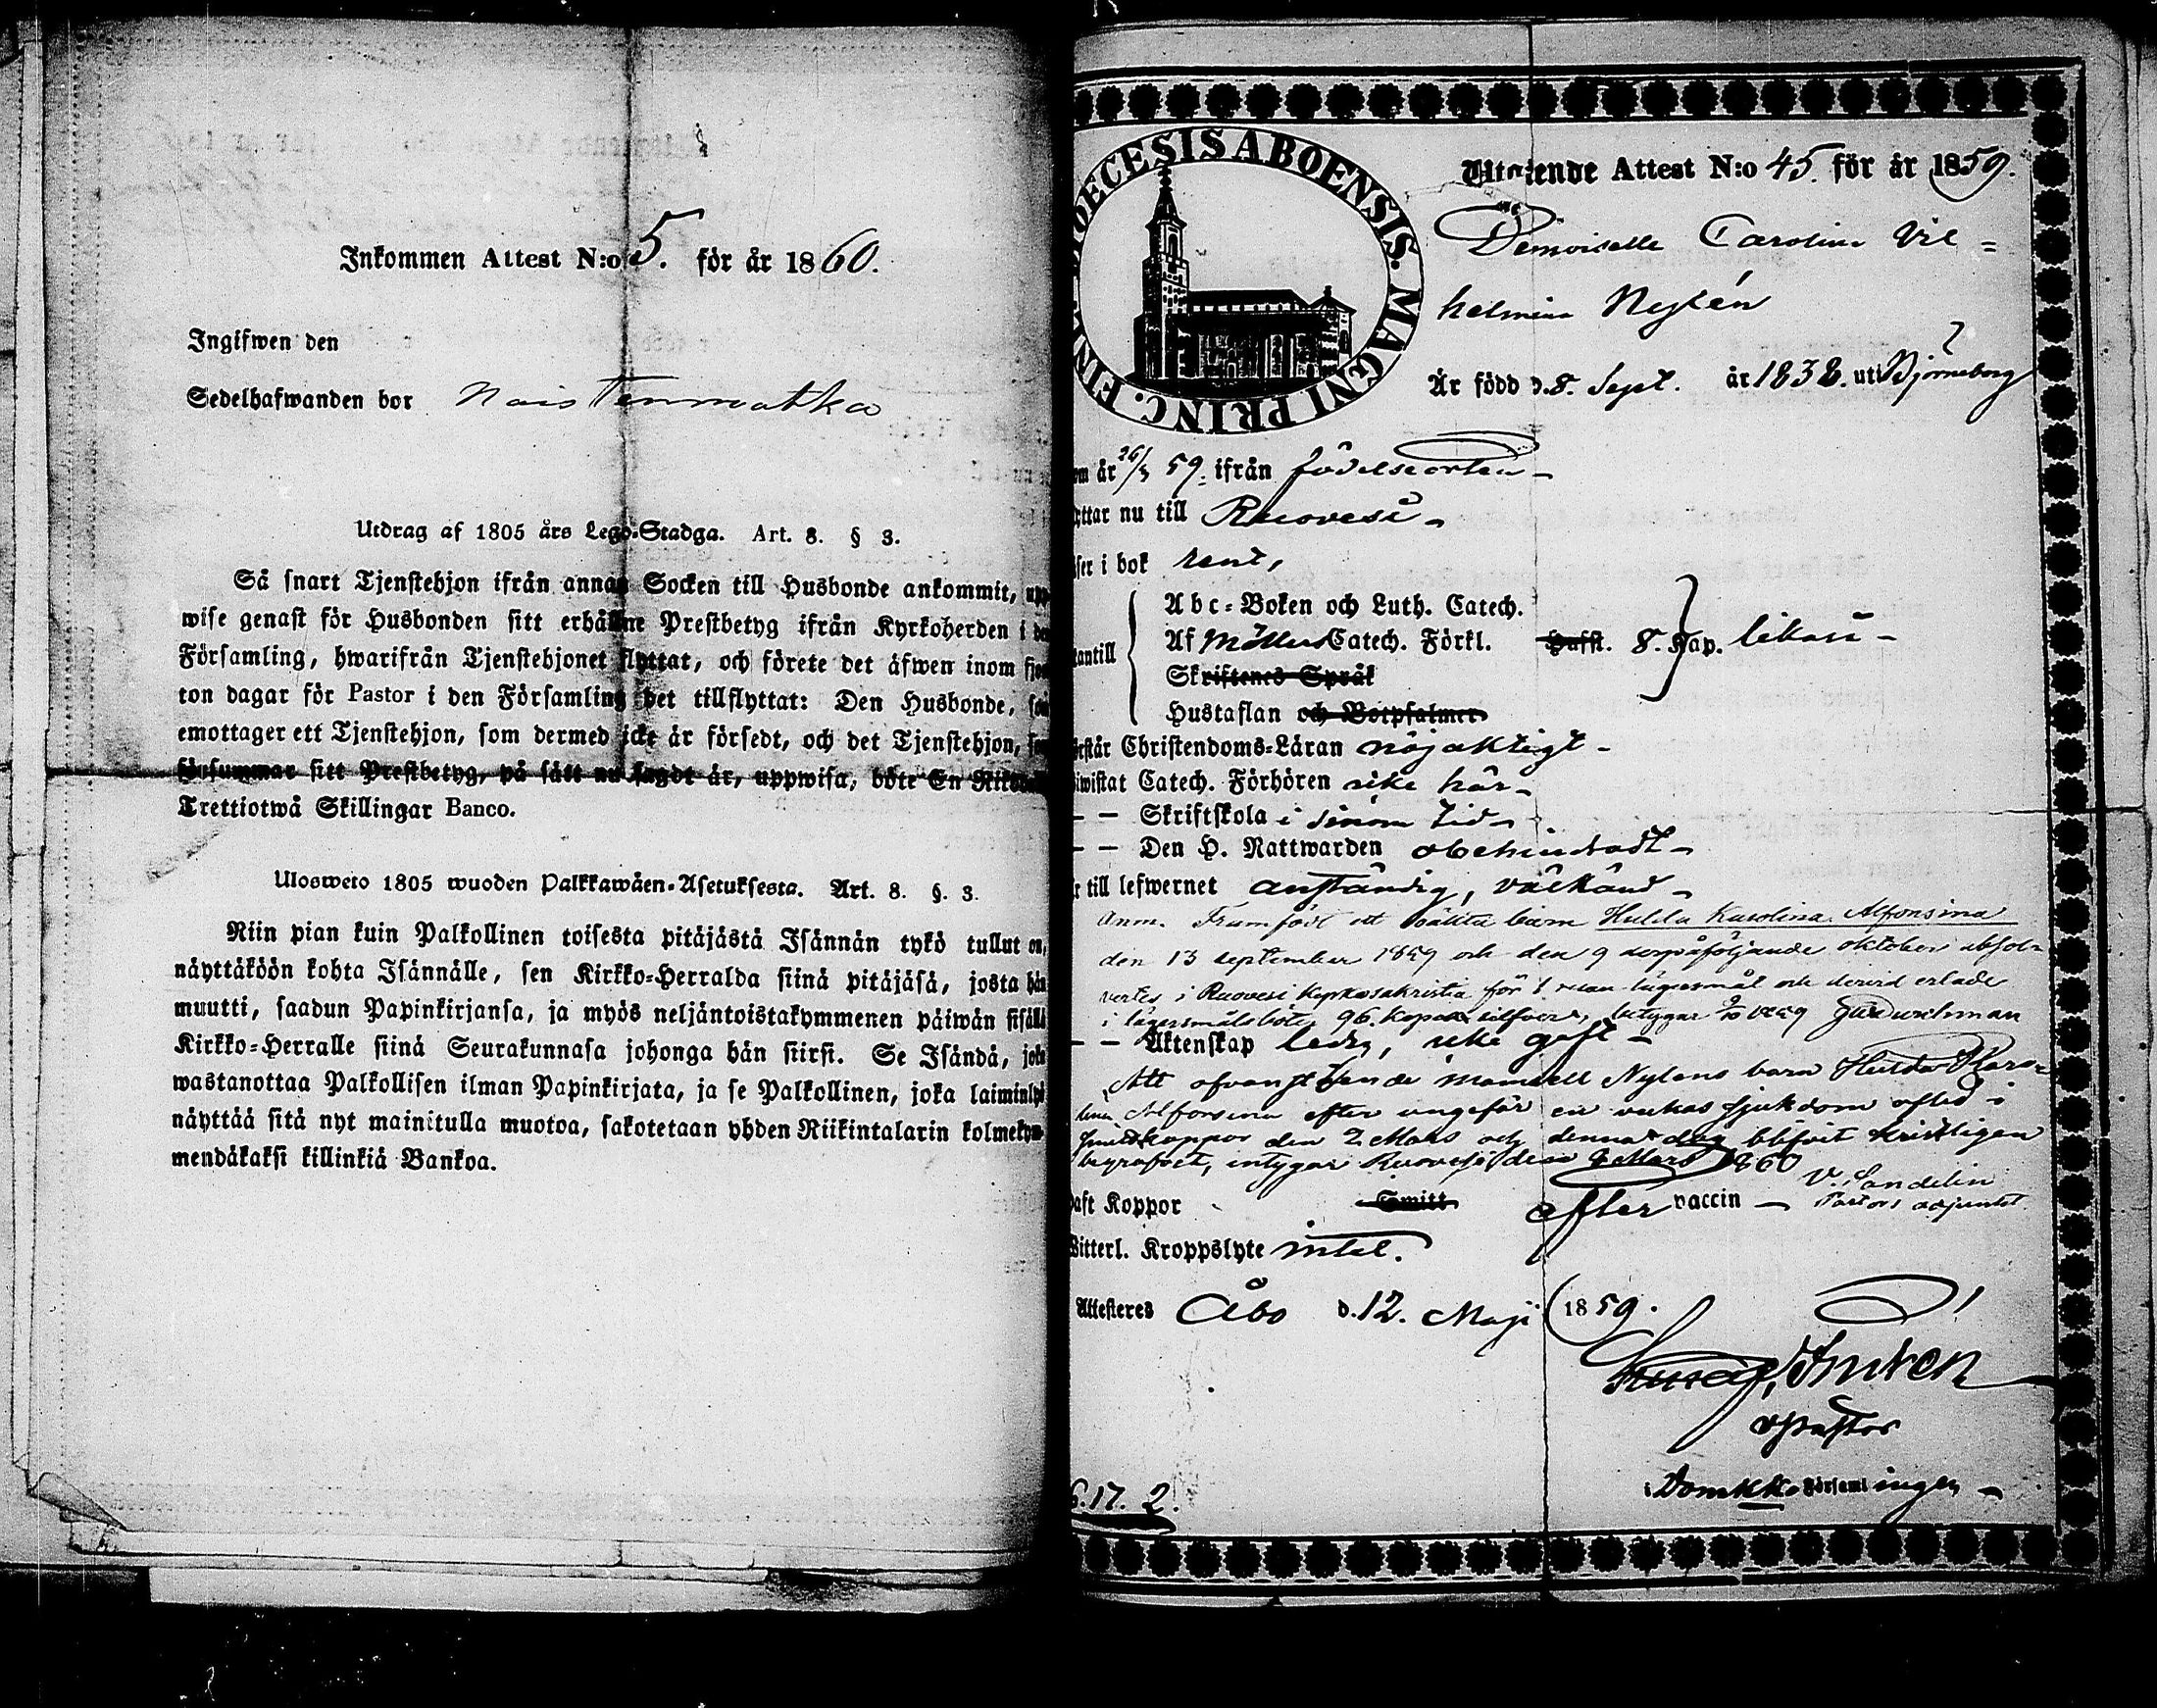 Inkommen Attest N:o 5. för år 1860.
Ingifwen den
Sedelhafwanden bor Naistenmatka
Utdrag af 1805 års Lego-Stadga. Art. 8. § 3.
Så snart Tjenstehjon ifrån annan Socken till Husbonde ankommit, upp
wise genast för Husbonden sitt erhållne Prestbetyg ifrån Kyrkoherden i den
Församling, hwarifrån Tjenstehjonet flyttat, och förete det äfwen inom fjor
ton dagar för Pastor i den Församling det tillflyttat: Den Husbonde, som
emottager ett Tjenstehjon, som dermed icke är försedt, och det Tjenstehjon, som
försummar sitt Prestbetyg, på sätt nu sagdt är, uppwisa, böte En Riksdaler
Trettiotwå Skillingar Banco.
Ulosweto 1805 wuoden Palkkawäen-Asetuksesta. Art. 8. §. 3.
Niin pian kuin Palkollinen toisesta pitäjästä Isännän tykö tullut on,
näyttäköön kohta Isännälle, sen Kirkko-Herralda siinä pitäjäsä, josta hän
muutti, saadun Papinkirjansa, ja myös neljäntoistakymmenen päiwän sisällä
Kirkko-Herralle siinä Seurakunnasa johonga hän siirsi. Se Isändä, joka
wastanottaa Palkollisen ilman Papinkirjata, ja se Palkollinen, joka laiminlyö
näyttää sitä nyt mainitulla muotoa, sakotetaan yhden Riikintalarin kolmekym
mendäkaksi killinkiä Bankoa.
DIOECESIS ABOENSIS. MAGNI PRINC. FINL
Utgående Attest N:o 45. för år 1859.
Demoiselle Carolina Vil=
helmina Nylén
Är född d. 8. Sept. år 1838. uti Björneborg
om år 26/3 59. ifrån födelseorten
yttar nu till Ruovesi
ser i bok rent,
antill
Abc-Boken och Luth. Catech.
Af Möllers Catech. Förkl. Hufst. 8. Kap. likaså
Skriftenes Språk
Hustaflan och Botpsalmer
rstår Christendoms-Läran nöjaktigt
iwistat Catech. Förhören icke här
— — Skriftskola i sinom tid
— — Den H. Nattwarden obehindradt
r till lefwernet anständig, välkänd
Anm. Framfödt ett oäkta barn Hulda Karolina Alfonsina
den 13 september 1859 och den 9 derpåföljande oktober absol-
verter i Ruovesi kyrkosakristia för 1 resan lägersmål och dervid erlade
i lägersmålsböter 96. kopek silfver, betygar 9/10 1859
— — Äktenskap ledig, icke gift
Att ofvanstående mamsell Nylens barn Hulda Karo-
lina Alfonsina efter ungefär en veckas sjukdom afled i
koppor den 2 Mars och denna dag blifvit kristligen
begrafvet, intygar Ruovesi den Mars 1860
V. Sandelin
Pastors adjunkt.
aft Koppor Smitt efter vaccin
Witterl. Kroppslyte intet.
Attesteras Åbo d. 12. Maji 1859.
v pastor
i Domkk. Församlingen
6.17. 2.